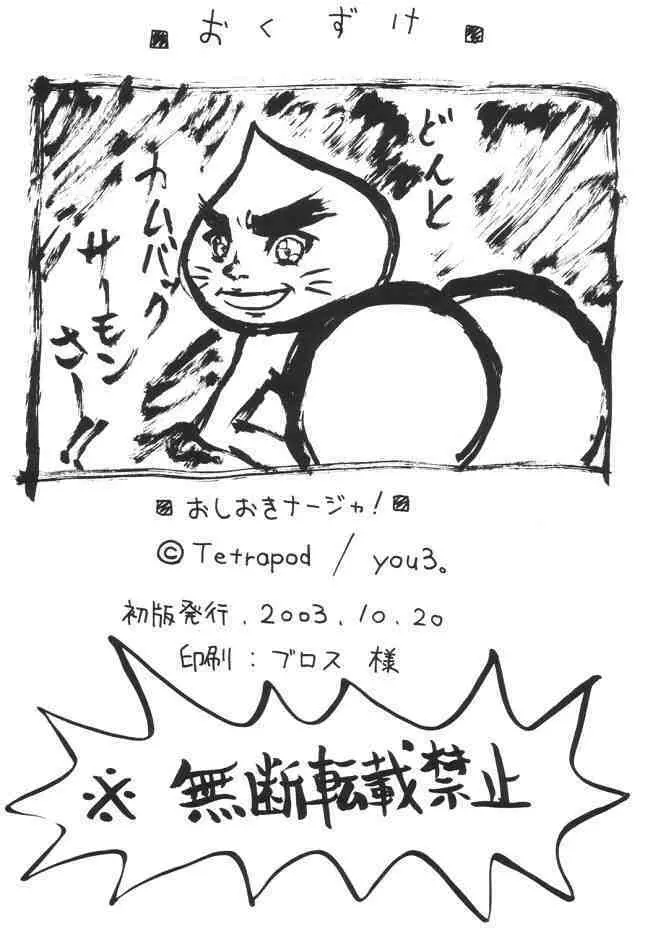 おくずけ
どんと
カムバック
サーモン
さー!!
おしおきナージャ!
© Tetrapod / you3。
初版発行.2003.10.20
印刷:ブロス 様
※無断転載禁止